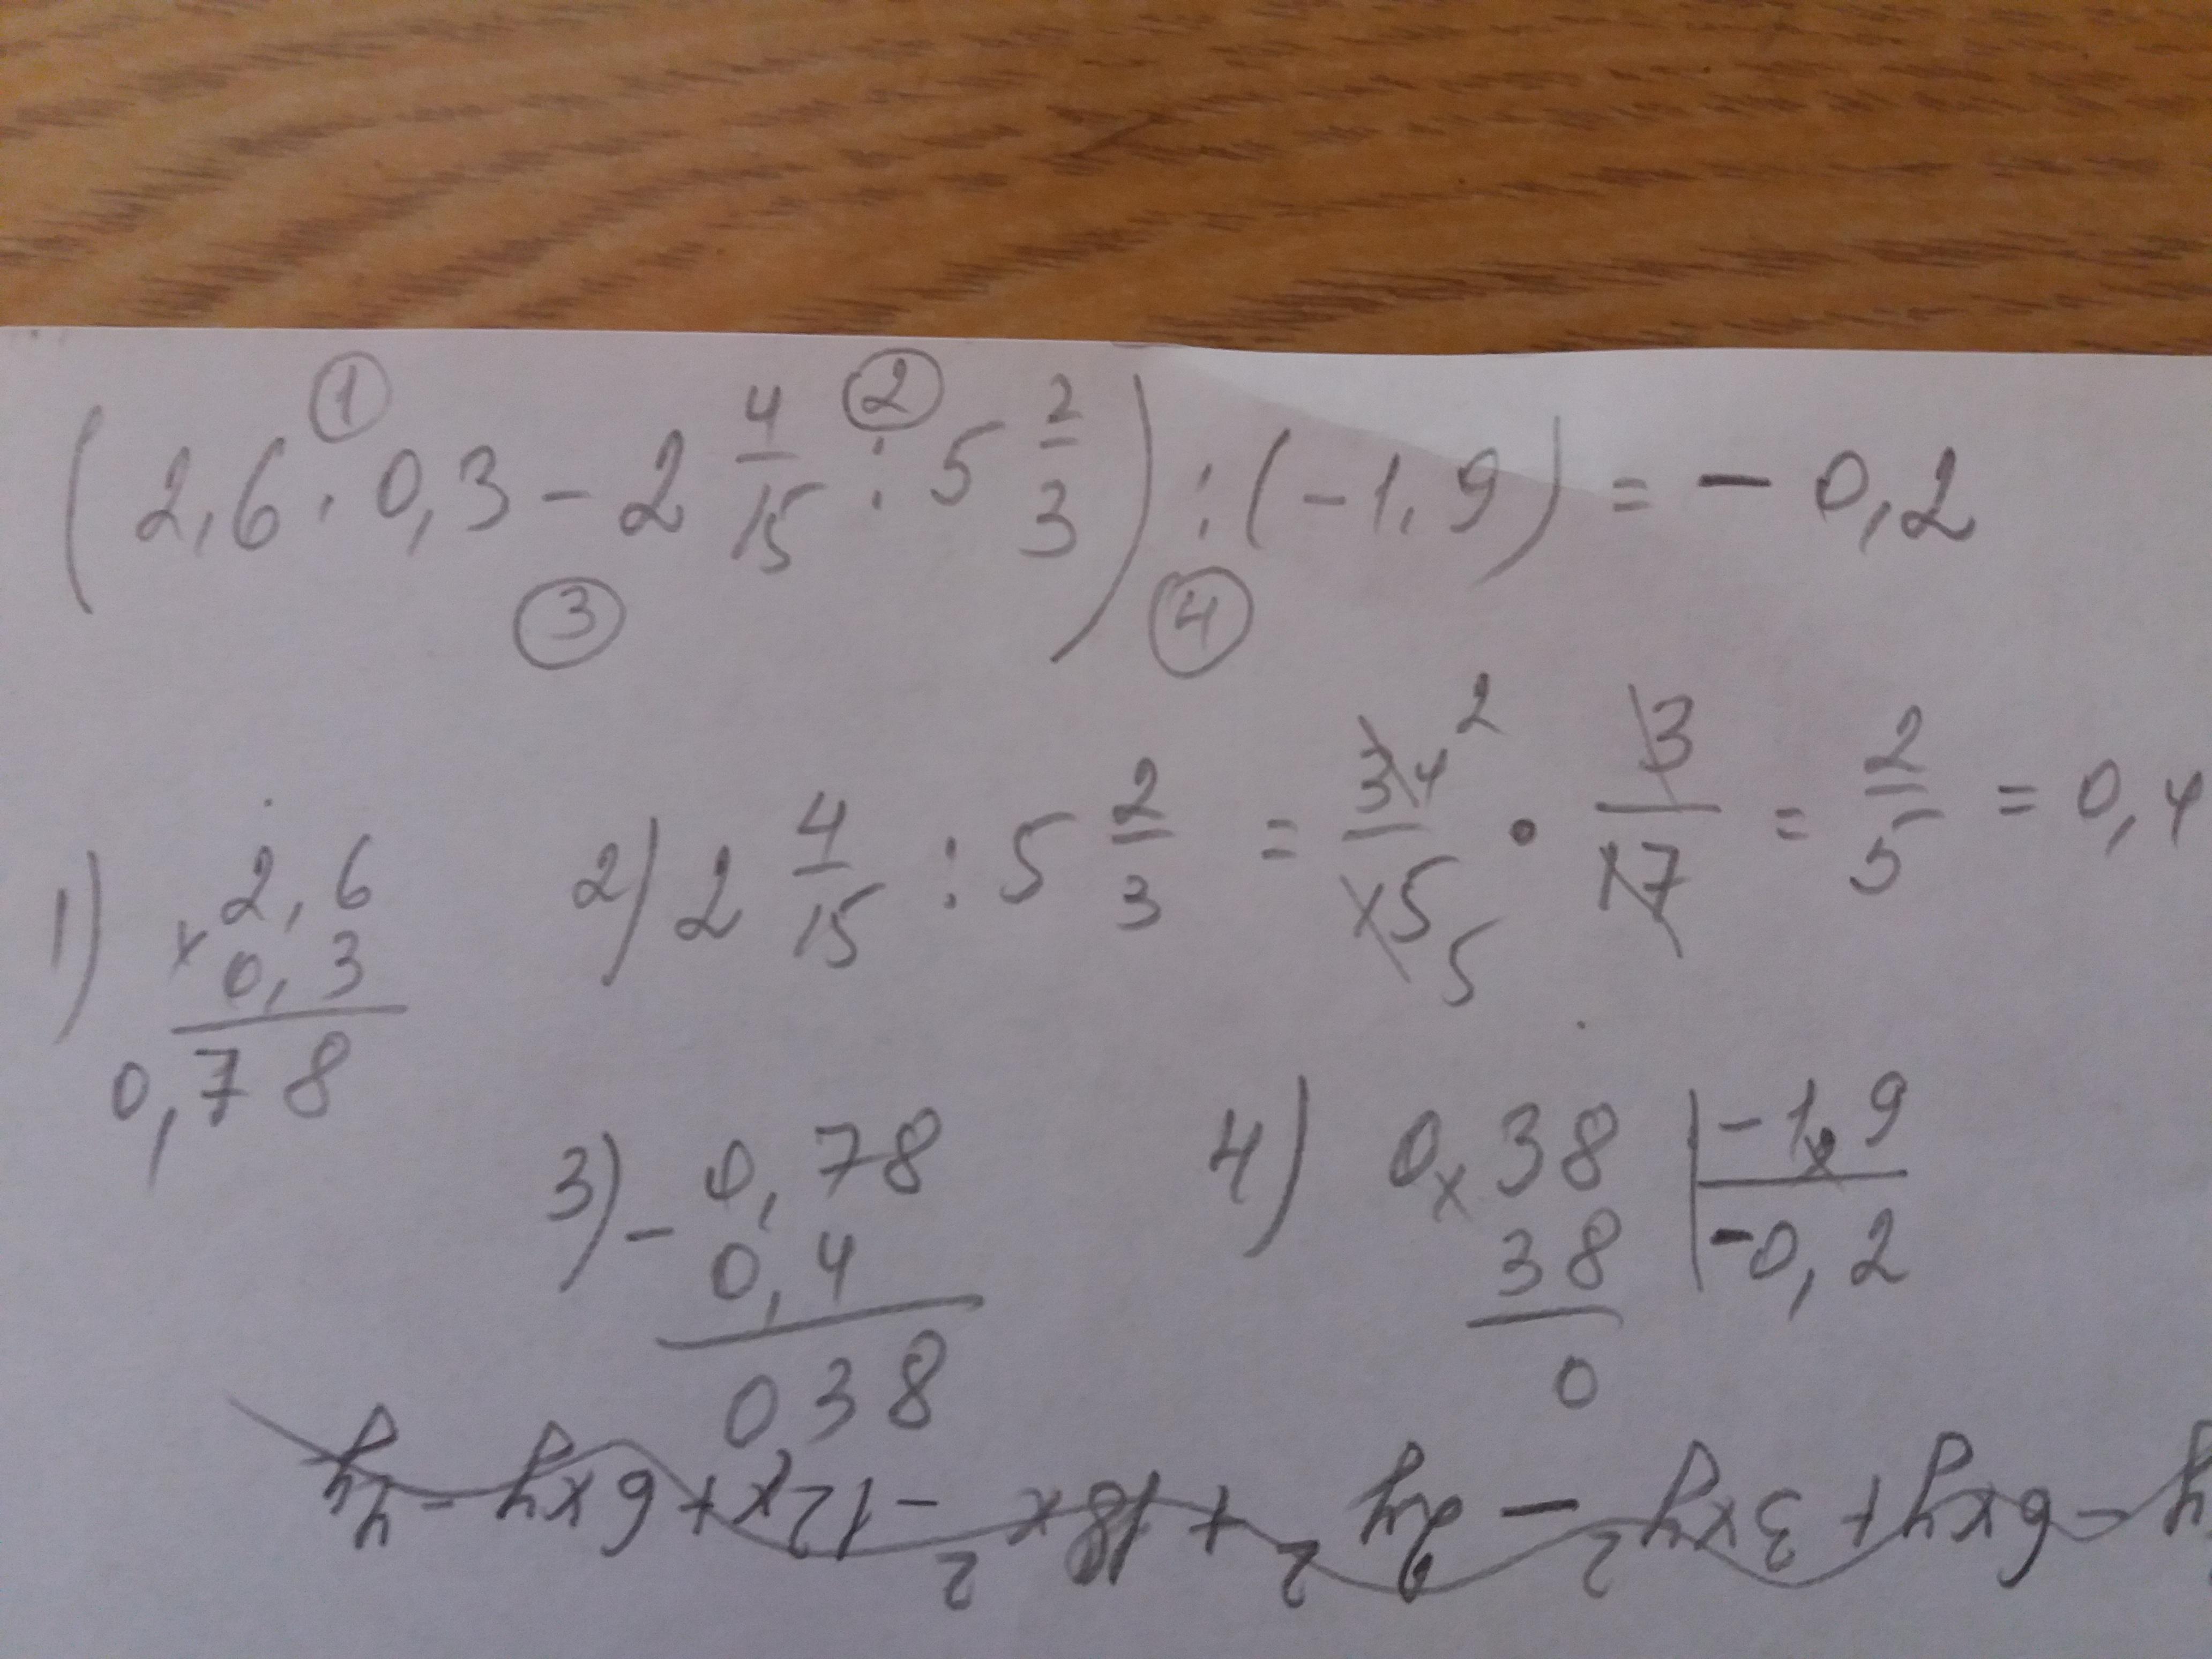 ① ②
(2,6 · 0,3 - 2 4/15 : 5 2/3) : (-1,9) = - 0,2
③ ④
1) 2,6
× 0,3
0,78
2) 2 4/15 : 5 2/3 = 34/15 2 5 • 3/17 = 2/5 = 0,4
3) - 0,78
0,4
0,38
4) 0,38 | -1,9
38 | -0,2
0